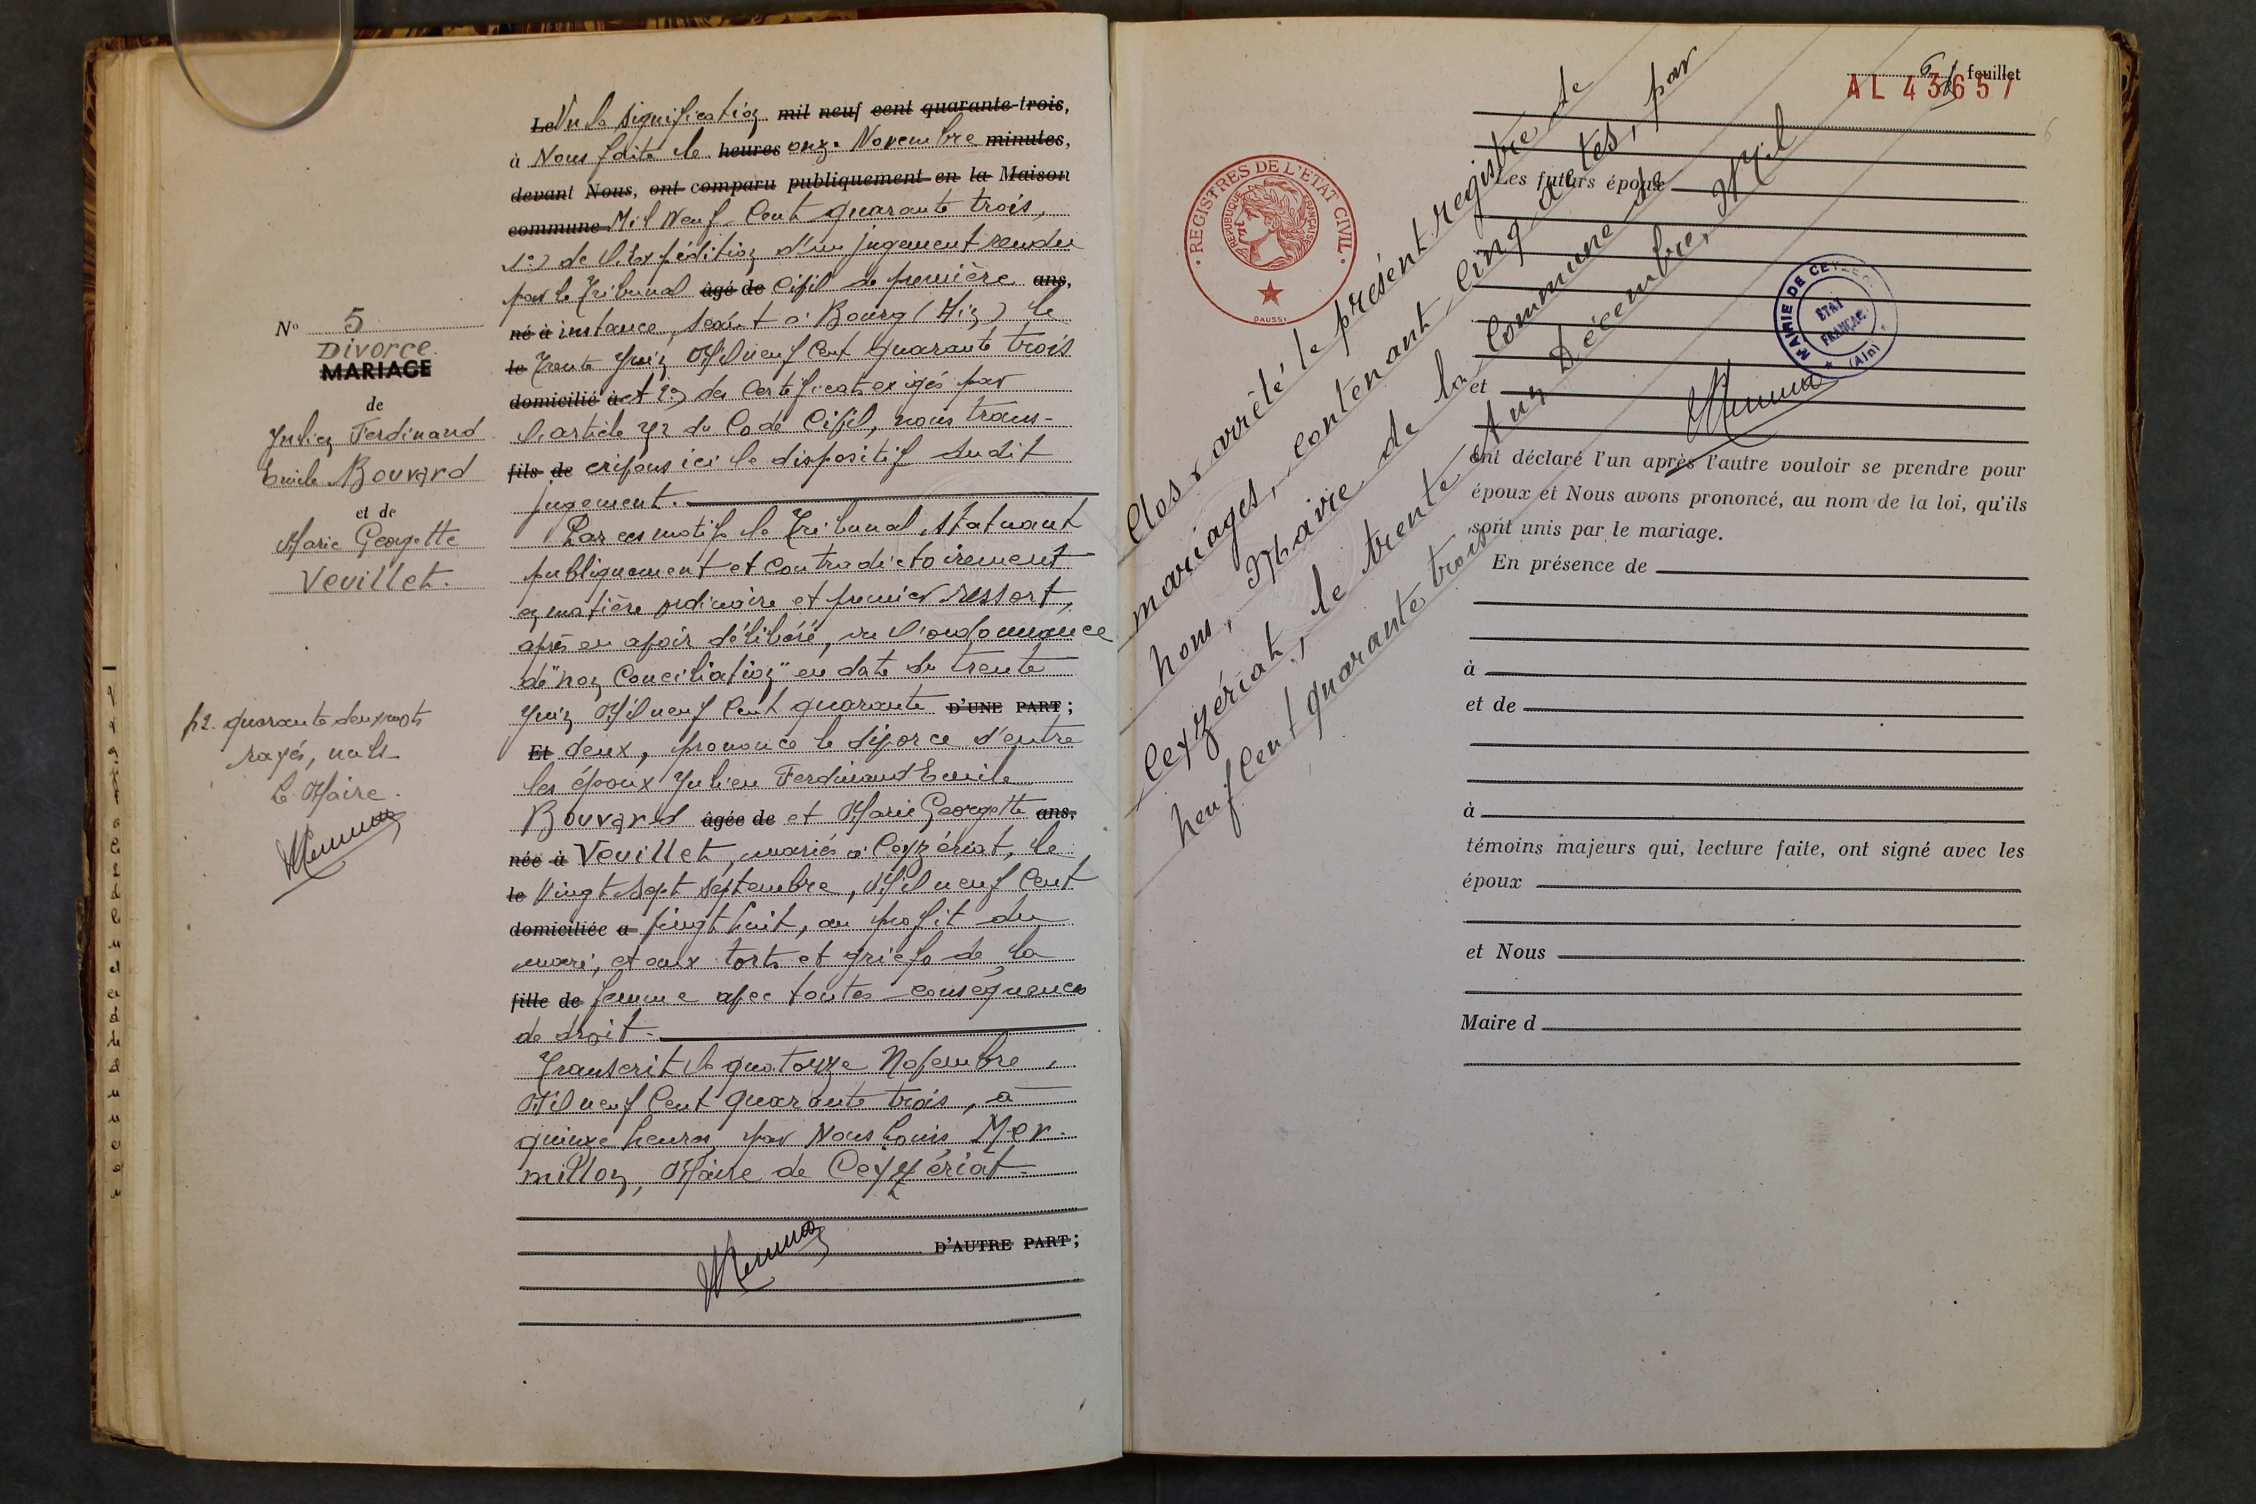 N° 5
Divorce
MARIAGE
de
Julien Ferdinand
Emile Bouvard
et de
Marie Georgette
Veuillet.
quarante deux mots
rayés, nuls
Le Maire.
Le Vu la signification mil neuf cent quarante-trois,
à Nous faite le heures onze Novembre minutes,
devant Nous, ont comparu publiquement en la Maison
commune Mil Neuf Cent quarante trois,
1º) de l'expédition d'un jugement rendu
par le Tribunal âgé de Civil de première ans,
né à instance, séant à Bourg (Ain) le
le Trente Juin Mil neuf Cent quarante trois
domicilié à et 2º) des Certificats exigés par
l'article 252 du Code Civil, nous trans-
fils de crivons ici le dispositif dudit
jugement.
Par ces motifs le Tribunal, statuant
publiquement et contradictoirement
en matière ordinaire et premier ressort,
après en avoir délibéré, vu l'ordonnance
de "non Conciliation" en date du trente
Juin Mil neuf Cent quarante D'UNE PART;
Et deux, prononce le divorce d'entre
les époux Julien Ferdinand Emile
Bouvard âgée de et Marie Georgette ans,
née à Veuillet, mariés à Ceyzériat, le
le Vingt sept septembre, Mil neuf Cent
domiciliée à vingt huit, au profit du
mari, et aux torts et griefs de la
fille de femme avec toutes conséquences
de droit.
Transcrit le quatorze Novembre,
Mil neuf Cent quarante trois, à
quinze heures, par Nous Louis Mer-
millon, Maire de Ceyzériat.
D'AUTRE PART;
6 feuillet
AL 43657
REGISTRES DE L'ETAT CIVIL
REPUBLIQUE FRANÇAISE
DAUSSY
Clos & arrêté le présent registre de
mariages, contenant cinq actes, par
nous, Maire de la Commune de
Ceyzériat, le trente et un Décembre, Mil
neuf Cent quarante trois
MAIRIE DE CEYZERIAT
ETAT
FRANÇAIS
(Ain)
Les futurs époux
et
ont déclaré l'un après l'autre vouloir se prendre pour
époux et Nous avons prononcé, au nom de la loi, qu'ils
sont unis par le mariage.
En présence de
à
et de
à
témoins majeurs qui, lecture faite, ont signé avec les
époux
et Nous
Maire d